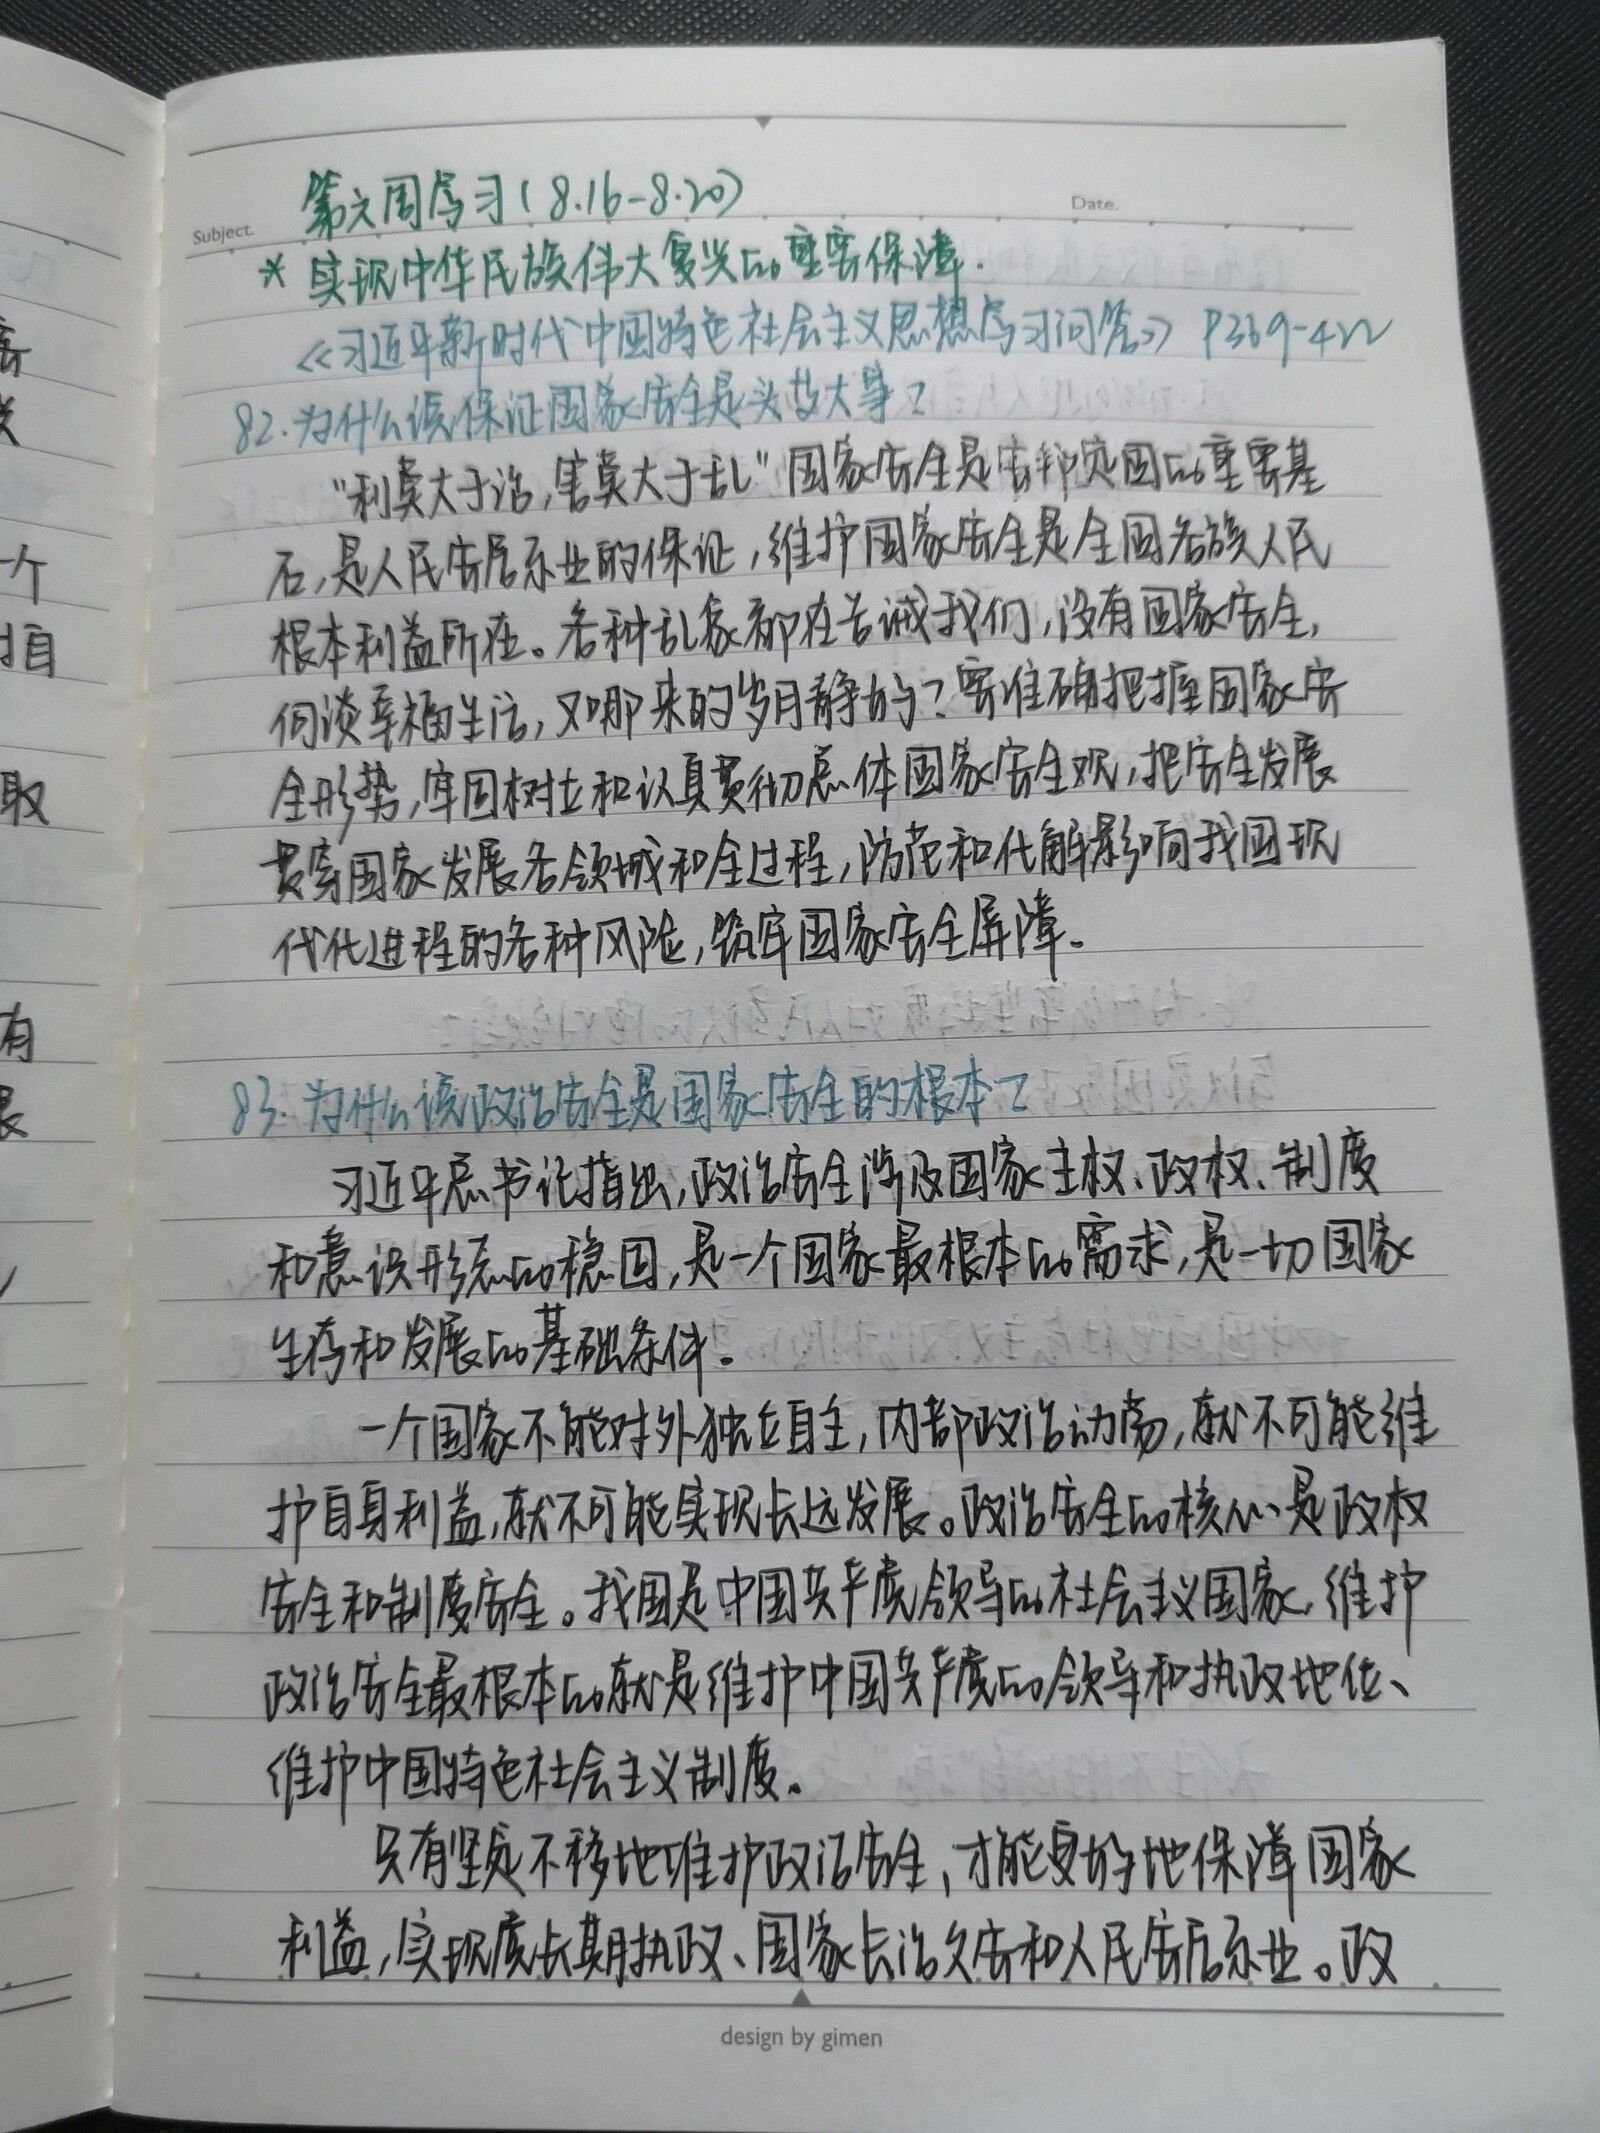 第六周学习(8.16-8.20)
Subject.
Date.
* 实现中华民族伟大复兴的重要保障.
《习近平新时代中国特色社会主义思想学习问答》 P369-422
82.为什么说保证国家安全是头等大事?
"利莫大于治,害莫大于乱"国家安全是安邦定国的重要基
石,是人民安居乐业的保证,维护国家安全是全国各族人民
根本利益所在。各种乱象都在告诫我们,没有国家安全,
何谈幸福生活,又哪来的岁月静好?要准确把握国家安
全形势,牢固树立和认真贯彻总体国家安全观,把安全发展
贯穿国家发展各领域和全过程,防范和化解影响我国现
代化进程的各种风险,筑牢国家安全屏障.
83.为什么说政治安全是国家安全的根本?
习近平总书记指出,政治安全涉及国家主权、政权、制度
和意识形态的稳固,是一个国家最根本的需求,是一切国家
生存和发展的基础条件.
一个国家不能对外独立自主,内部政治动荡,就不可能维
护自身利益,就不可能实现长远发展。政治安全的核心是政权
安全和制度安全。我国是中国共产党领导的社会主义国家,维护
政治安全最根本的就是维护中国共产党的领导和执政地位、
维护中国特色社会主义制度。
只有坚定不移地维护政治安全,才能更好地保障国家
利益,实现党长期执政、国家长治久安和人民安居乐业。政
design by gimen
个
自
取
有